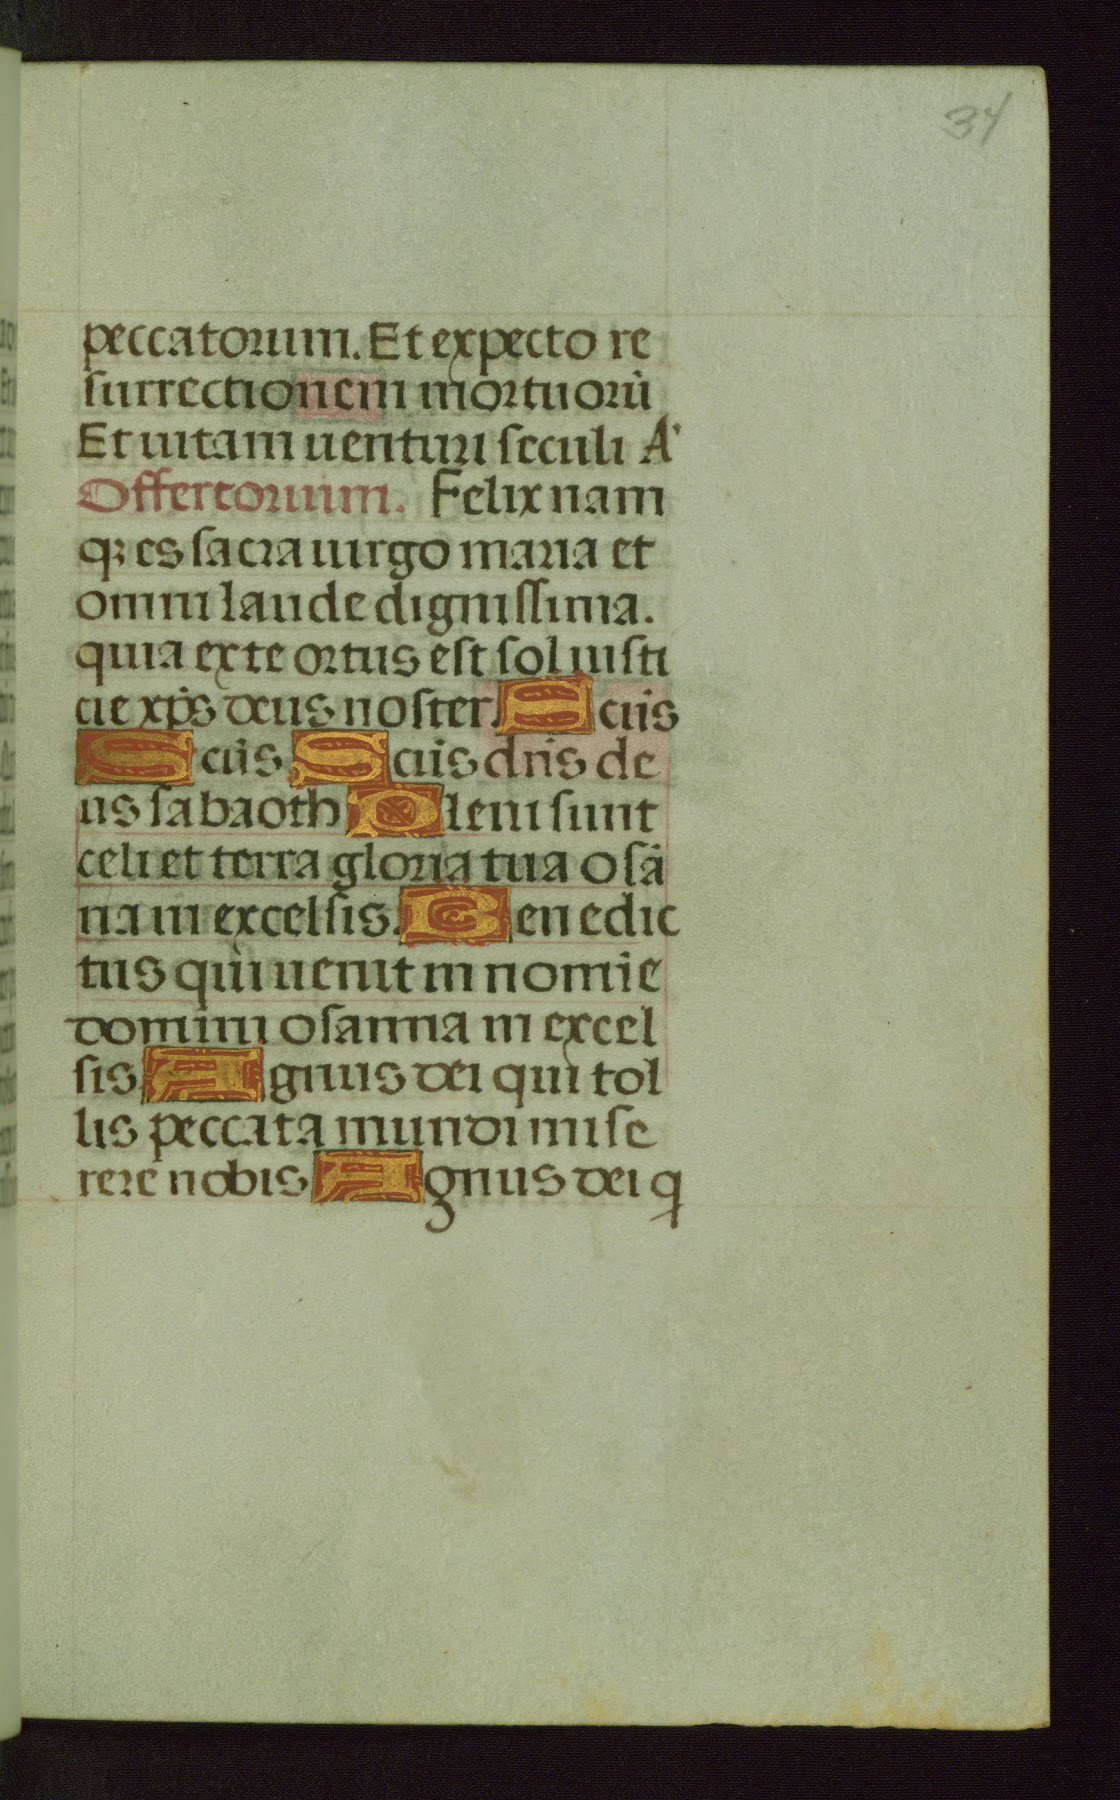 34
peccatorum. Et expecto re
surrectionem mortuorū
Et uitam uenturi seculi A'
Offertorium. Felix nam
qꝫ es sacra uirgo maria et
omni laude dignissima.
quia ex te ortus est sol iusti
cie xp̄s deus noster. S cūs
S cūs S cūs dn̄s de
us sabaoth P leni sunt
celi et terra gloria tua osā
na in excelsis. B enedic
tus qui uenit in nomīe
domini osanna in excel
sis A gnus dei qui tol
lis peccata mundi mise
rere nobis A gnus dei q